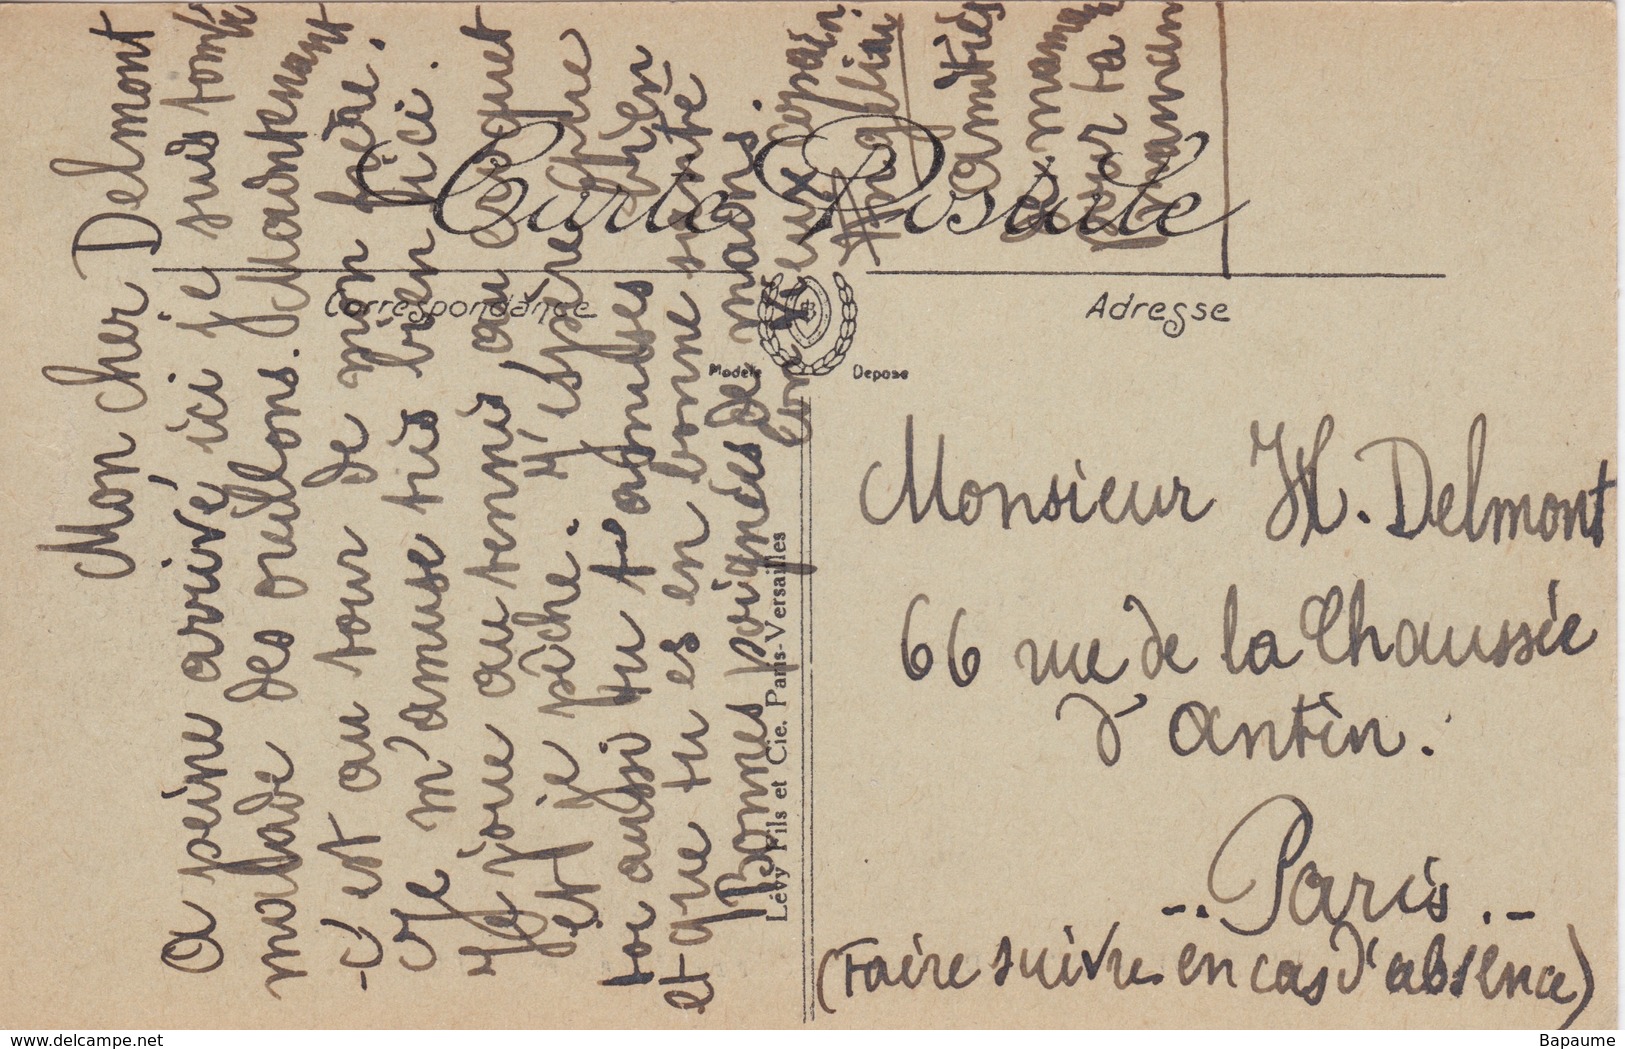 Carte Postale
Correspondance
Adresse
Modèle Déposé
Mon cher Delmont
A peine arrivé, ici je suis tombé
malade des oreillons. Maintenant
c'est au tour de mon frère.
Je m'amuse très bien ici.
Je joue au tennis au croquet
et je pêche. J'espère que
toi aussi tu t'amuses bien
et que tu es en bonne santé
Bonnes poignées de mains.
Ton vieux copain
amitiés
à maman
pour ta
maman
Lévy Fils et Cie. Paris-Versailles
Monsieur H. Delmont
66 rue de la Chaussée
d'antin.
-. Paris .-
(Faire suivre en cas d'absence)
www.delcampe.net
Bapaume